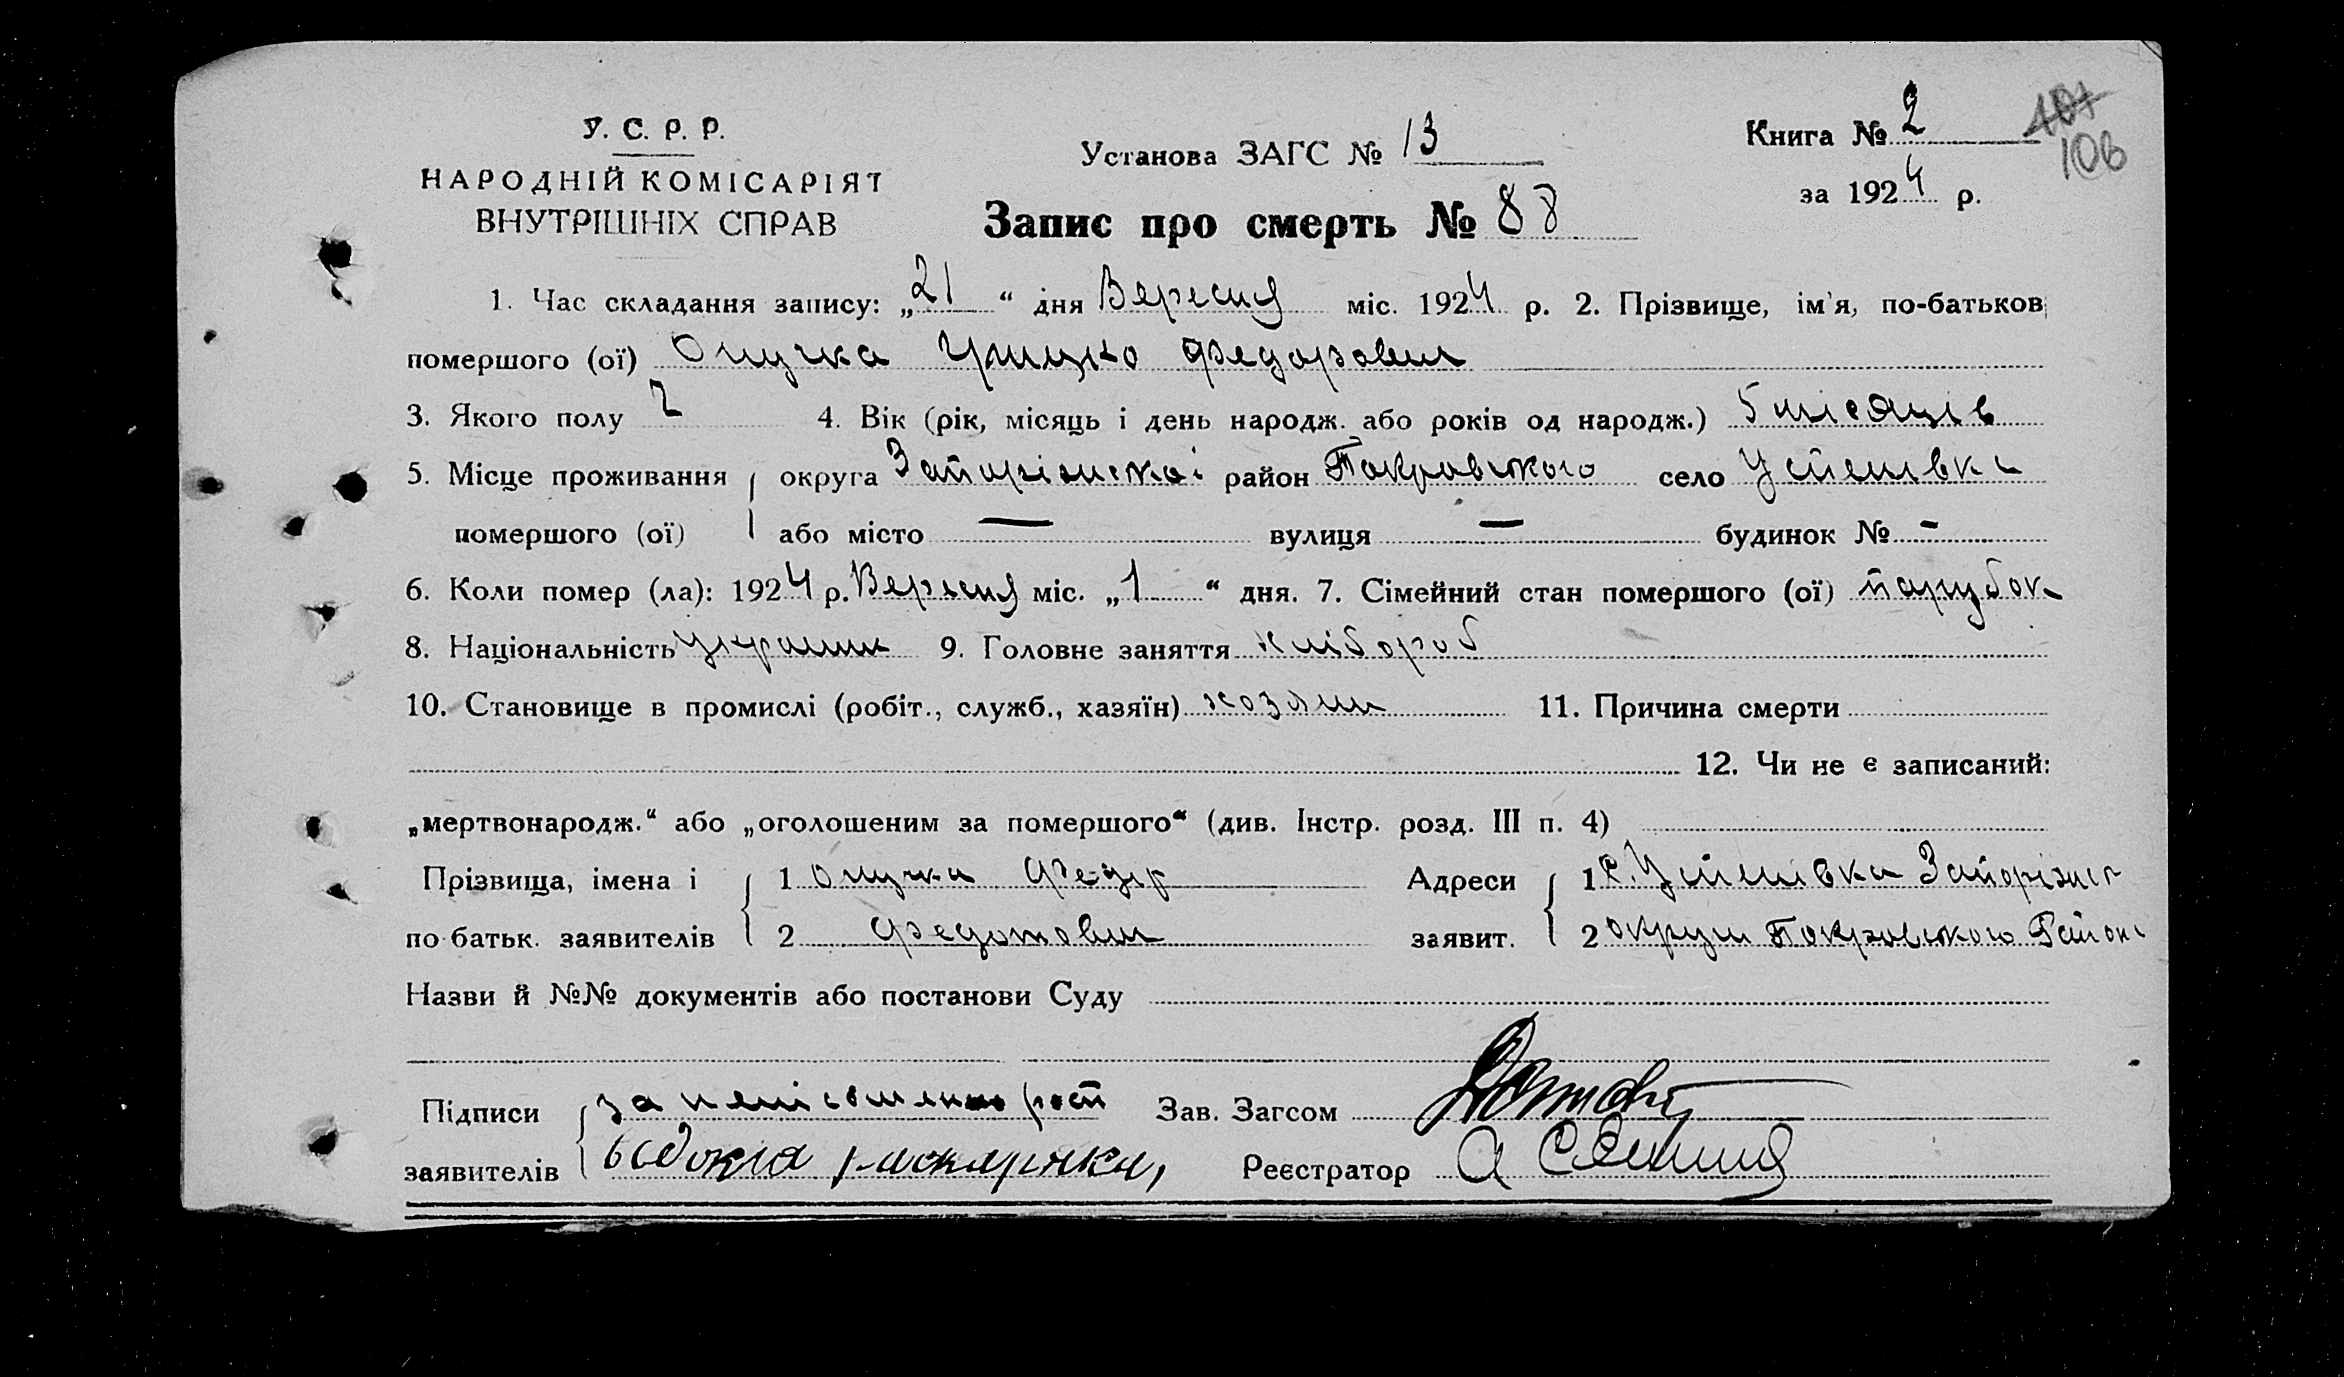 У. С. Р. Р.
НАРОДНІЙ КОМІСАРІЯТ
ВНУТРІШНІХ СПРАВ
Установа ЗАГС № 13
Книга № 2
за 1924 р.
106
Запис про смерть № 88
1. Час складання запису: „21“ дня Вересня міс. 1924 р. 2. Прізвище, ім'я, по-батьков
помершого (ої) Онучка Грицко Федорович
3. Якого полу Ч 4. Вік (рік, місяць і день народж. або років од народж.) 5 місяців
5. Місце проживання округа Запоріжської район Покровського село Успенівка
помершого (ої) або місто — вулиця — будинок № -
6. Коли помер (ла): 1924 р. Вересня міс. „1“ дня. 7. Сімейний стан помершого (ої) парубок
8. Національність українин 9. Головне заняття хлібороб
10. Становище в промислі (робіт., служб., хазяїн) хозяин 11. Причина смерти
12. Чи не є записаний:
„мертвонародж.“ або „оголошеним за помершого“ (див. Інстр. розд. III п. 4)
Прізвища, імена і 1 Онучка Федір Адреси 1 с. Успенівка Запоріжск
по батьк. заявителів 2 Федотович заявит. 2 округи Покровського Району
Назви й №№ документів або постанови Суду
Підписи за Зав. Загсом
заявителів Реєстратор